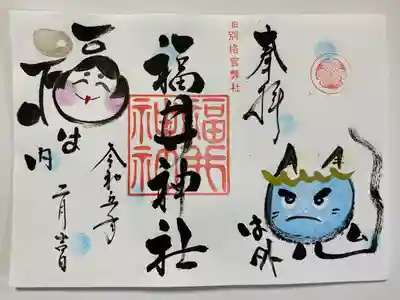 奉拝
鬼は外
旧別格官幣社
福井神社
福井
神社
福は内
令和五年
二月吉日